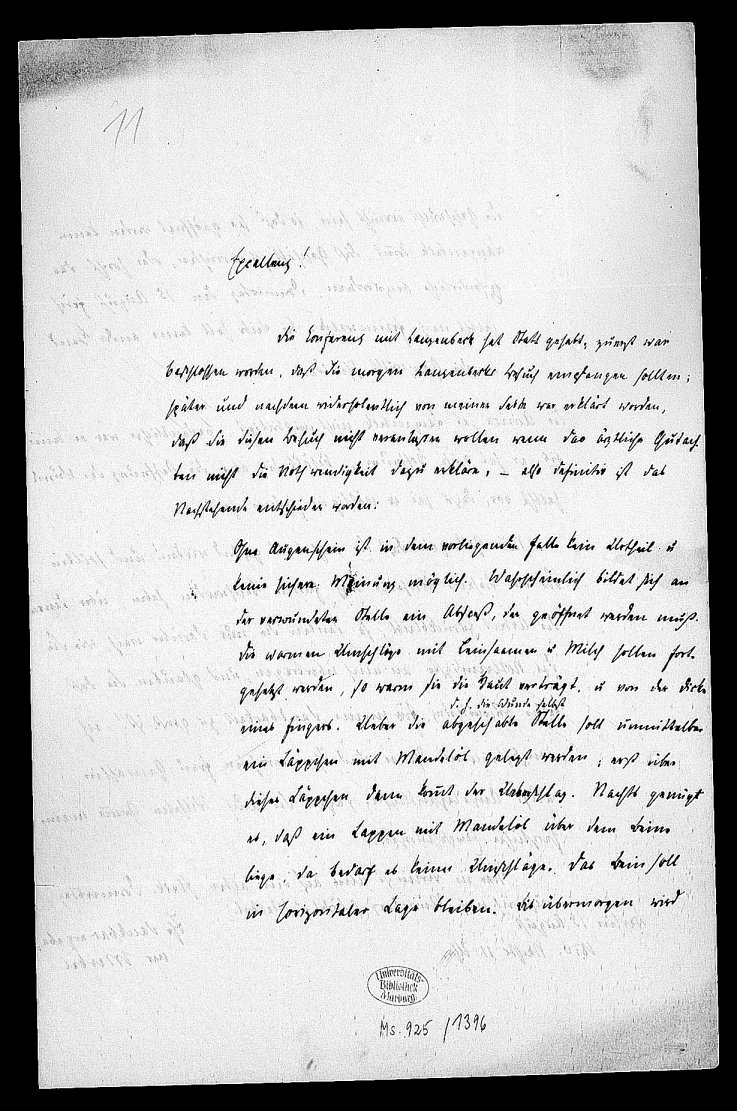 11
Excellenz!
die Conferenz mit Langenbeck hat Statt gehabt, zuerst war
beschlossen worden, daß die morgen Langenbecks Besuch empfangen sollten;
später und nachdem widerholentlich von meiner Seite war erklärt worden,
daß die diesen Besuch nicht veranlassen wollen wenn das ärztliche Gutach-
ten nicht die Nothwendigkeit dazu erkläre, – also definitiv ist das
Nachstehende entschieden worden:
Ohne Augenschein ist in dem vorliegenden Falle kein Urtheil u
keine sichere Meinung möglich. Wahrscheinlich bildet sich an
der verwundeten Stelle ein Absceß, der geöffnet werden muß.
Die warmen Umschläge mit Leinsaamen u Milch sollen fort-
gesetzt werden, so warm sie die Haut verträgt, u von der Dicke
eines Fingers. Ueber die abgeschabte Stelle soll unmittelbar
d. h. die Wunde selbst
ein Läppchen mit Mandelöl gelegt werden; erst über
dieses Läppchen dann kommt der Umschlag. Nachts genügt
es, daß ein Lappen mit Mandelöl über dem Beine
liege, da bedarf es keiner Umschläge. Das Bein soll
in horizontaler Lage bleiben. Bis übermorgen wird
Universitäts-
Bibliothek
Marburg
Ms. 925 /1396